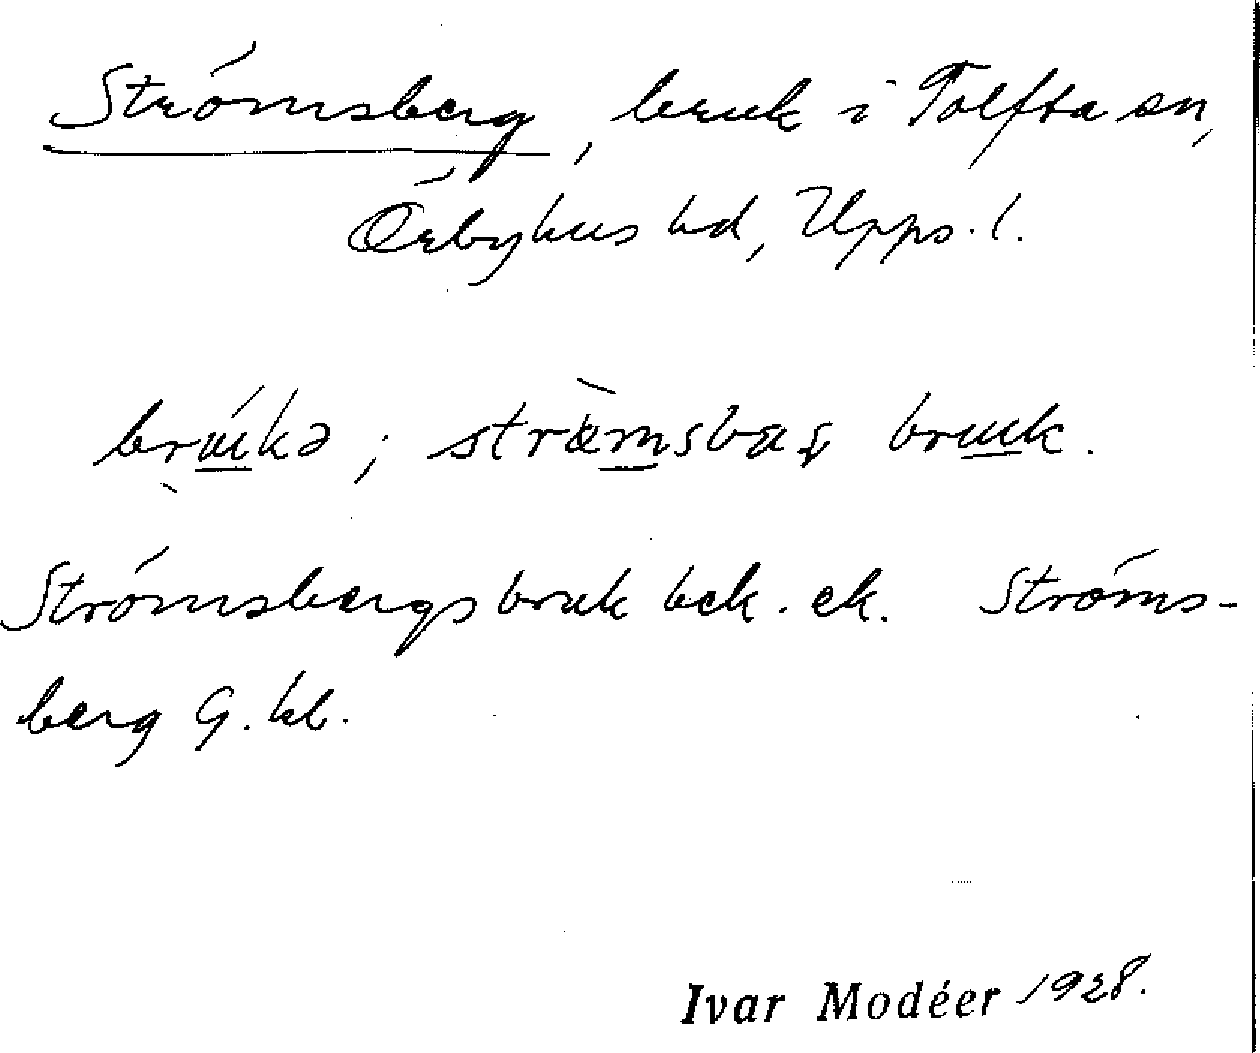 Strömsberg, bruk i Tolfta sn,
Örbyhus hd, Upps. l.
brukə; stræmsbaṛ bruk.
Strömsbergs bruk bek. ek. Ströms-
berg G. kb.
Ivar Modéer 1928.